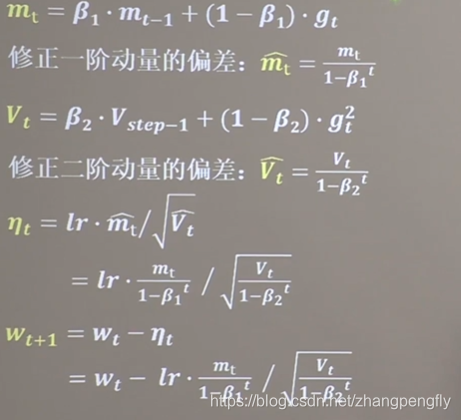 mₜ = β₁ · mₜ₋₁ + (1 − β₁) · gₜ
修正一阶动量的偏差：m̂ₜ = mₜ / (1−β₁ᵗ)
Vₜ = β₂ · V_{step−1} + (1 − β₂) · gₜ²
修正二阶动量的偏差：V̂ₜ = Vₜ / (1−β₂ᵗ)
ηₜ = lr · m̂ₜ / √(V̂ₜ)
= lr · mₜ / (1−β₁ᵗ) / √(Vₜ / (1−β₂ᵗ))
wₜ₊₁ = wₜ − ηₜ
= wₜ − lr · mₜ / (1−β₁ᵗ) / √(Vₜ / (1−β₂ᵗ))
https://blog.csdn.net/zhangpengfly